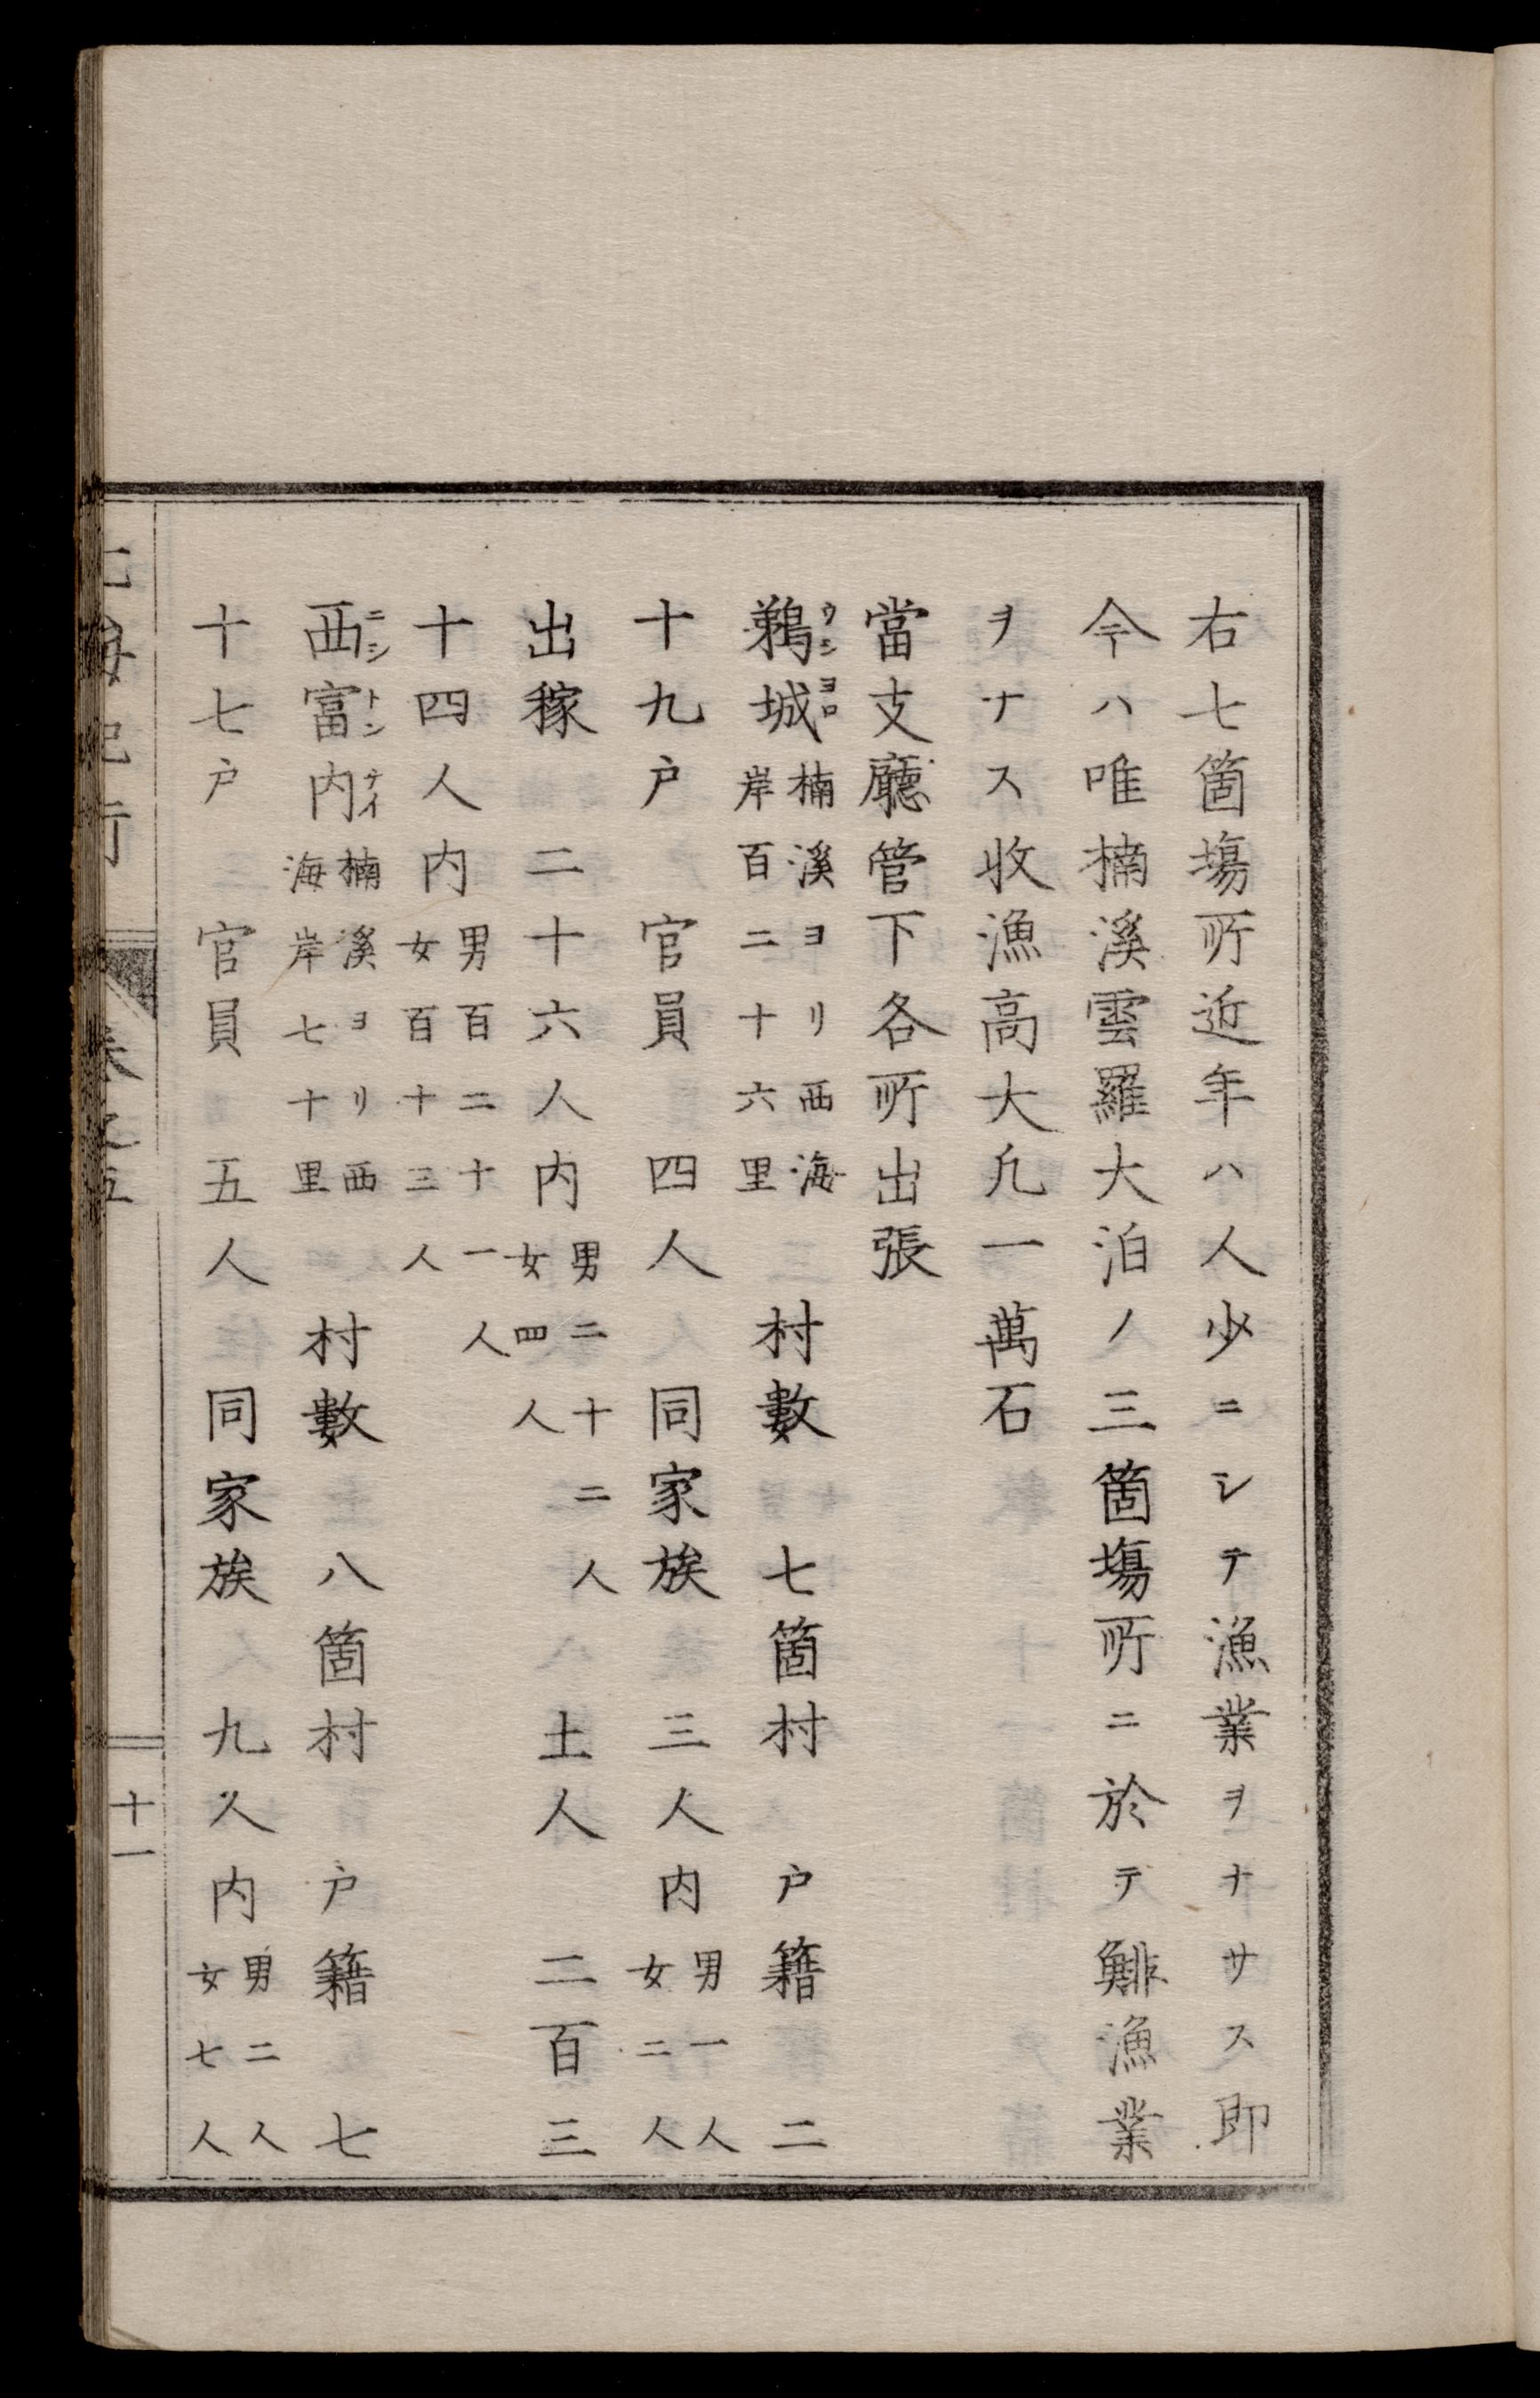 右七箇塲所近年ハ人少ニシテ漁業ヲナサス即
今ハ唯楠溪雲羅大泊ノ三箇塲所ニ於テ鯡漁業
ヲナス收漁高大凡一萬石
當支廳管下各所出張
鵜城 楠溪ヨリ西海岸百二十六里 村數 七箇村 户籍 二
ウシヨロ
十九户 官員 四人 同家族 三人内 男一人 女二人
出稼 二十六人内 男二十二人 女四人 土人 二百三
十四人内 男百二十一人 女百十三人
西富内 楠溪ヨリ西海岸七十里 村數 八箇村 户籍 七
ニシトンナイ
十七户 官員 五人 同家族 九人内 男二人 女七人
十一